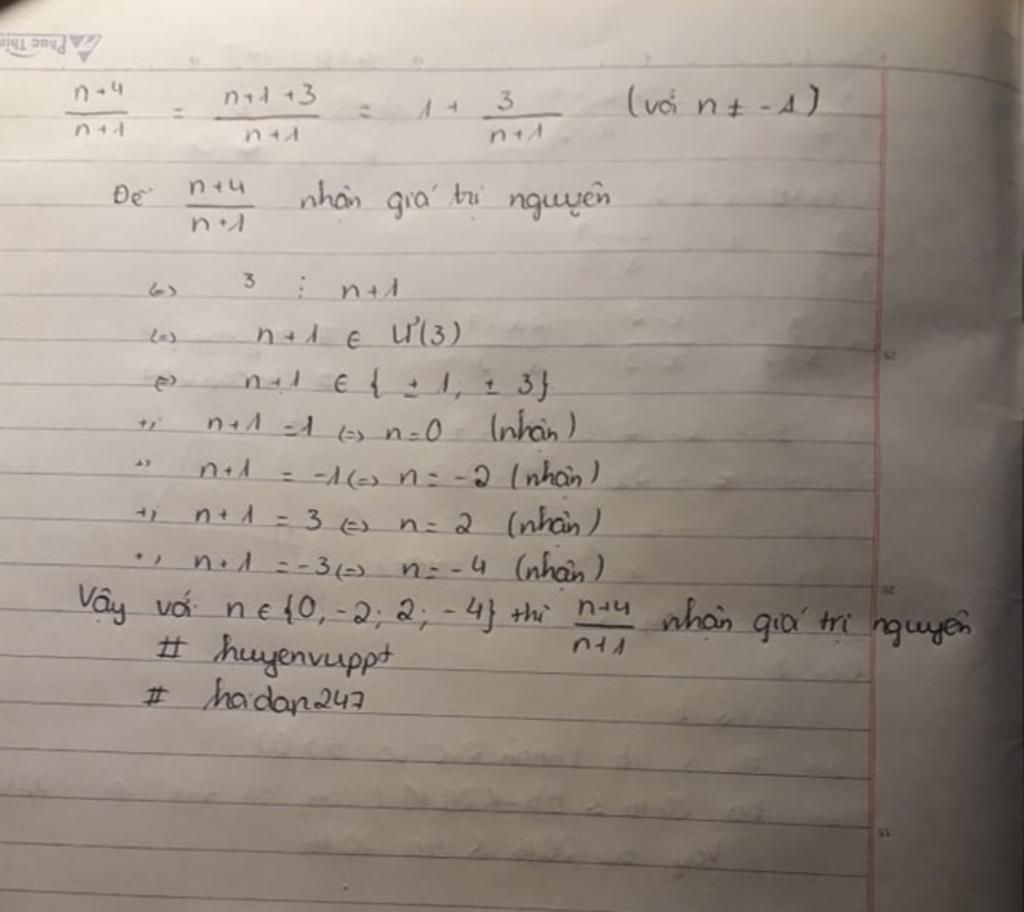 Phúc Thịn
n+4/n+1 = n+1+3/n+1 = 1 + 3/n+1 (với n ≠ -1)
Để n+4/n+1 nhận giá trị nguyên
<=> 3 ⋮ n+1
<=> n+1 ∈ Ư(3)
<=> n+1 ∈ { ±1, ±3}
+, n+1 = 1 <=> n=0 (nhận)
+, n+1 = -1 <=> n = -2 (nhận)
+, n+1 = 3 <=> n = 2 (nhận)
+, n+1 = -3 <=> n = -4 (nhận)
Vậy với n ∈ {0; -2; 2; -4} thì n+4/n+1 nhận giá trị nguyên
# huyenvuppt
# hadan247
25
20
15